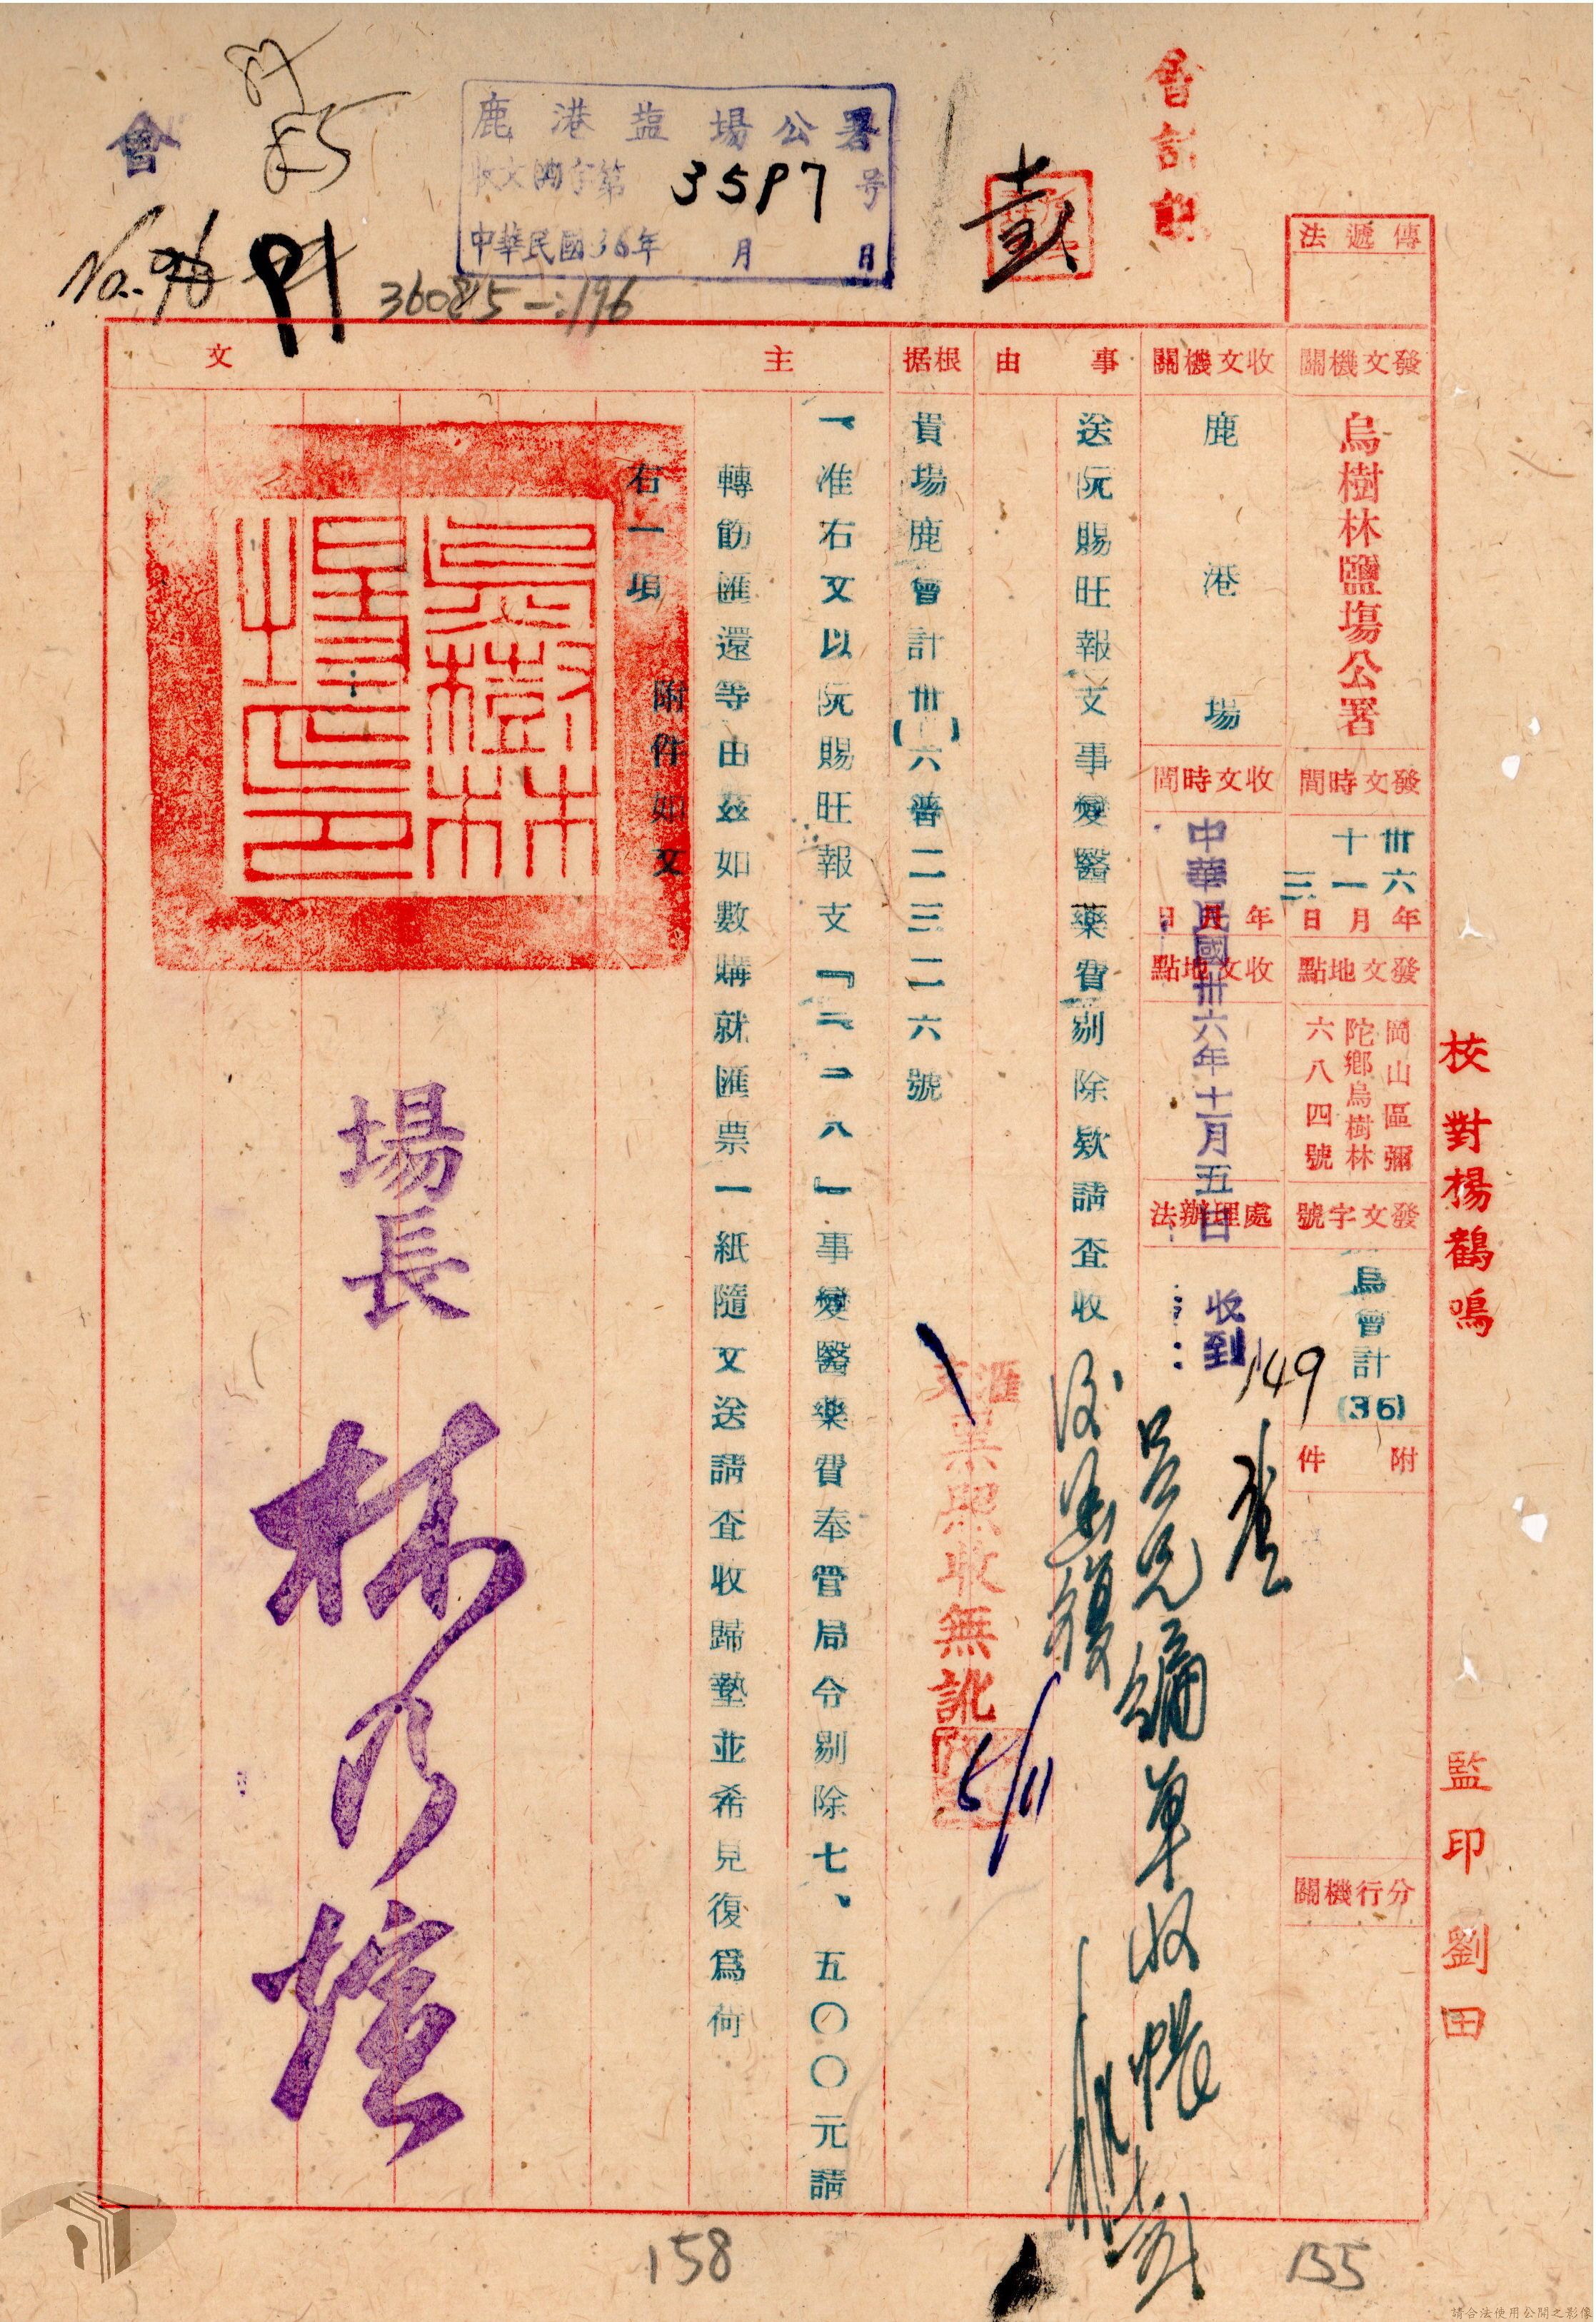 會計課
鹿港塩場公署
收文 字第3597号
中華民國36年 月 日
會
No. 96
91
360815-:196
傳遞法
發文機關
烏樹林鹽場公署
發文時間
卅六年十一月三日
發文地點
岡山區彌陀鄉烏樹林六八四號
發文字號
烏會計(36)149
附件
分行機關
收文機關
鹿港場
收文時間
年月日
中華民國卅六年十一月五日
收到
收文地點
處理辦法
事由
送阮賜旺報支事變醫藥費剔除欵請查收
根据
貴場鹿會計卅(一)六普二三二六號
主文
一准右文以阮賜旺報支『二二八』事變醫藥費奉管局令剔除七、五〇〇元請
轉飭匯還等由茲如數購就匯票一紙隨文送請查收歸墊並希見復爲荷
右一項 附件如文
烏樹林場之印
場長 林乃壎
匯票
照收無訛
5/11
校對楊鶴鳴
監印劉田
158
155
請合法使用公開之影像